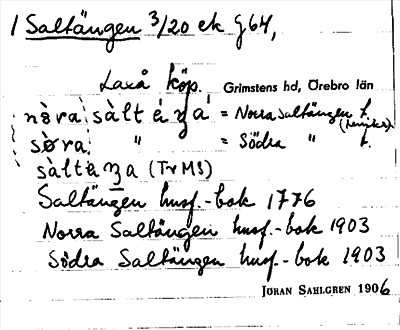 1 Saltängen 3/20 ek g 64,
Laxå köp. Grimstens hd, Örebro län
nòra sàltéŋa = Norra Saltängen t.
sø̀ra " = Södra " t.
sàlteŋa (Tv MS)
Saltängen husf.-bok 1776
Norra Saltängen husf.-bok 1903
Södra Saltängen husf.-bok 1903
JÖRAN SAHLGREN 1906